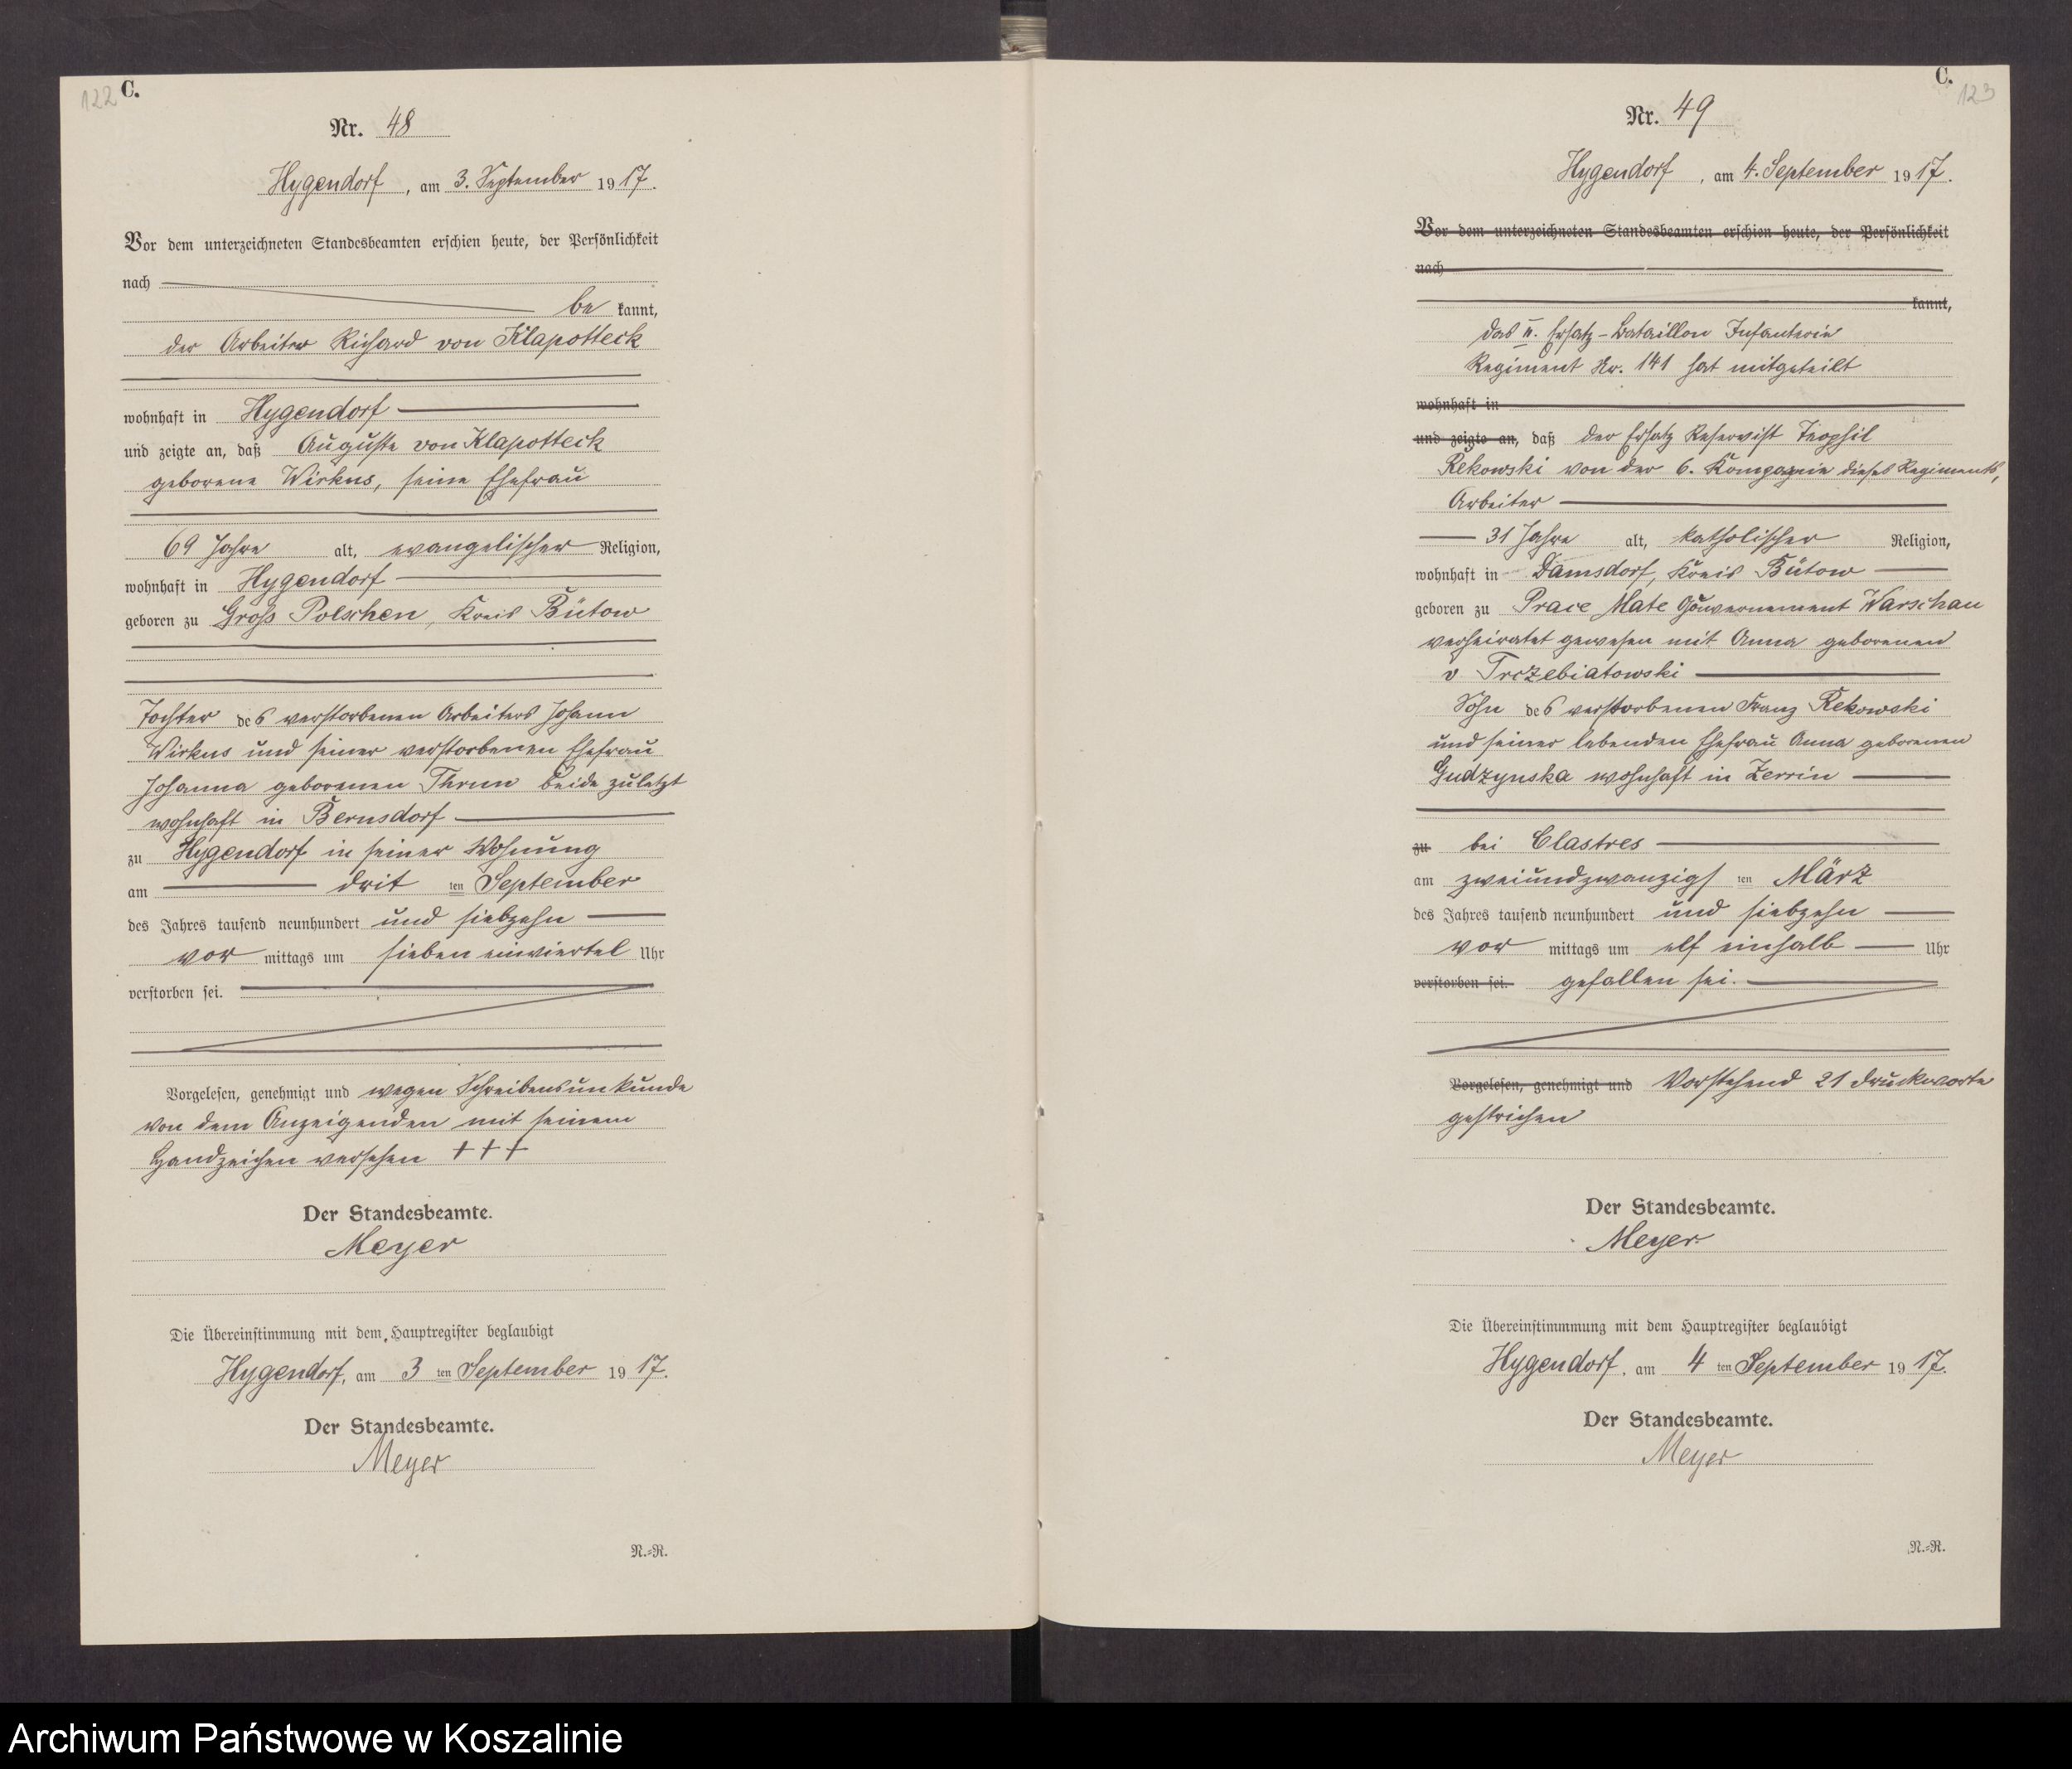 122 C.
Nr. 48
Hygendorf, am 3. September 1917.
Vor dem unterzeichneten Standesbeamten erschien heute, der Persönlichkeit
nach
be kannt,
der Arbeiter Richard von Klapotteck
wohnhaft in Hygendorf
und zeigte an, daß Auguste von Klapotteck
geborene Wirkus, seine Ehefrau
69 Jahre alt, evangelischer Religion,
wohnhaft in Hygendorf
geboren zu Groß Polschen, Kreis Bütow
Tochter des verstorbenen Arbeiters Johann
Wirkus und seiner verstorbenen Ehefrau
Johanna geborenen Thrun beide zuletzt
wohnhaft in Bernsdorf
zu Hygendorf in seiner Wohnung
am drit ten September
des Jahres tausend neunhundert und siebzehn
vor mittags um sieben einviertel Uhr
verstorben sei.
Vorgelesen, genehmigt und wegen Schreibensunkunde
von dem Anzeigenden mit seinem
Handzeichen versehen +++
Der Standesbeamte.
Meyer
Die Übereinstimmung mit dem Hauptregister beglaubigt
Hygendorf, am 3 ten September 1917.
Der Standesbeamte.
Meyer
N.=R.
C. 123
Nr. 49
Hygendorf, am 4. September 1917.
Vor dem unterzeichneten Standesbeamten erschien heute, der Persönlichkeit
nach
kannt,
das II. Ersatz-Bataillon Infanterie
Regiment Nr. 141 hat mitgeteilt
wohnhaft in
und zeigte an, daß der Ersatz Reservist Teophil
Rekowski von der 6. Kompagnie dieses Regiments,
Arbeiter
31 Jahre alt, katholischer Religion,
wohnhaft in Damsdorf, Kreis Bütow
geboren zu Prace Mate Gouvernement Warschau
verheiratet gewesen mit Anna geborenen
v Trczebiatowski
Sohn des verstorbenen Franz Rekowski
und seiner lebenden Ehefrau Anna geborenen
Gudzynska wohnhaft in Zerrin
zu bei Clastres
am zweiundzwanzigs ten März
des Jahres tausend neunhundert und siebzehn
vor mittags um elf einhalb Uhr
verstorben sei. gefallen sei.
Vorgelesen, genehmigt und Vorstehend 21 Druckworte
gestrichen
Der Standesbeamte.
Meyer
Die Übereinstimmung mit dem Hauptregister beglaubigt
Hygendorf, am 4 ten September 1917.
Der Standesbeamte.
Meyer
N.=R.
Archiwum Państwowe w Koszalinie